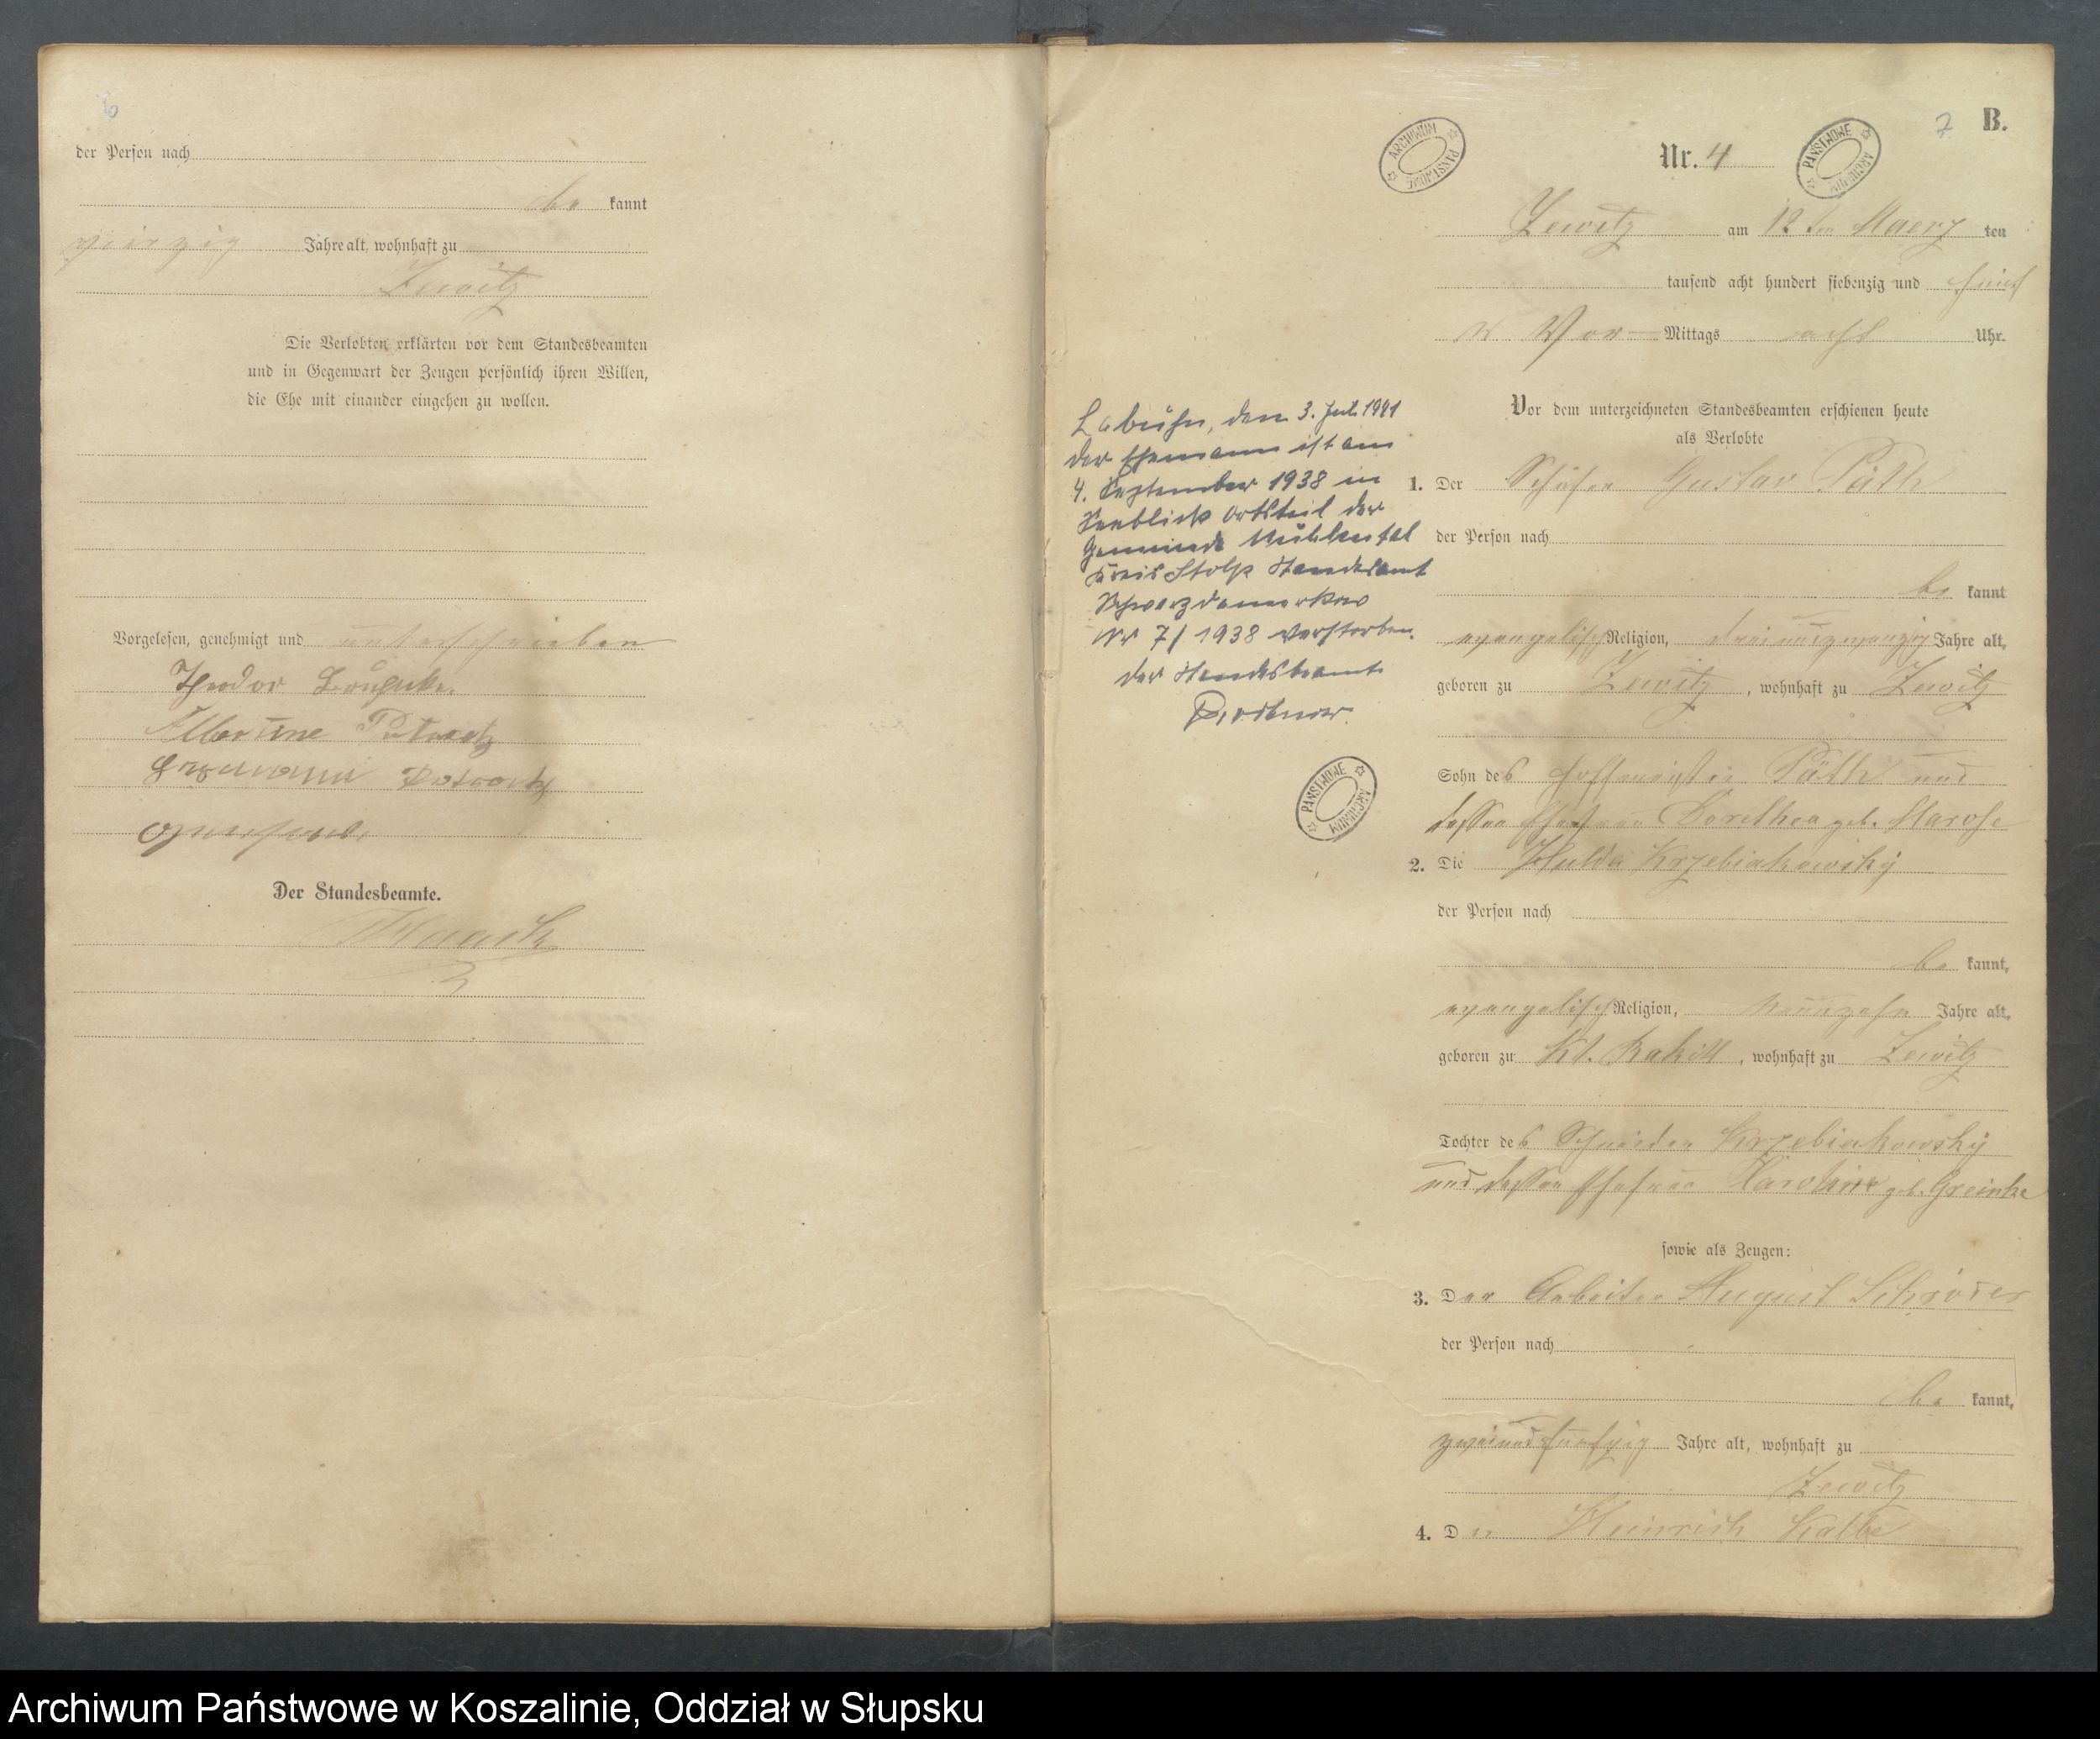 6
der Person nach
be kannt
vierzig Jahre alt, wohnhaft zu
Zewitz
Die Verlobten erklärten vor dem Standesbeamten
und in Gegenwart der Zeugen persönlich ihren Willen,
die Ehe mit einander eingehen zu wollen.
Vorgelesen, genehmigt und unterschrieben
Theodor
Albertine
Der Standesbeamte.
7 B.
ARCHIWUM PAŃSTWOWE
Nr. 4
PAŃSTWOWE ARCHIWUM
Zewitz am 12ten Maerz ten
tausend acht hundert siebenzig und fünf
Vor Mittags acht Uhr.
Vor dem unterzeichneten Standesbeamten erschienen heute
als Verlobte
1. Der Schäfer Gustav Päth
der Person nach
be kannt
evangelisch Religion, dreiundzwanzig Jahre alt,
geboren zu Zewitz, wohnhaft zu Zewitz
Sohn des Hofmeister Päth und
dessen Ehefrau Dorethea geb. Marose
2. Die Hulda Krzebiakowsky
der Person nach
be kannt,
evangelisch Religion, neunzehn Jahre alt,
geboren zu Kl. Rakitt, wohnhaft zu Zewitz
Tochter des Schneider Krzebiakowsky
und dessen Ehefrau Karoline geb. Greinke
sowie als Zeugen:
3. Der Arbeiter August Schröder
der Person nach
be kannt,
zweiundfünfzig Jahre alt, wohnhaft zu
Zewitz
4. Der Heinrich Kalbe
Labuhn, den 3. Juli 1941
Der Ehemann ist am
4. September 1938 in
Seeblick Ortsteil der
Gemeinde Mühlental
Kreis Stolp Standesamt
Schwarzdamerkow
Nr 7/1938 verstorben.
Der Standesbeamte
PAŃSTWOWE ARCHIWUM
Archiwum Państwowe w Koszalinie, Oddział w Słupsku